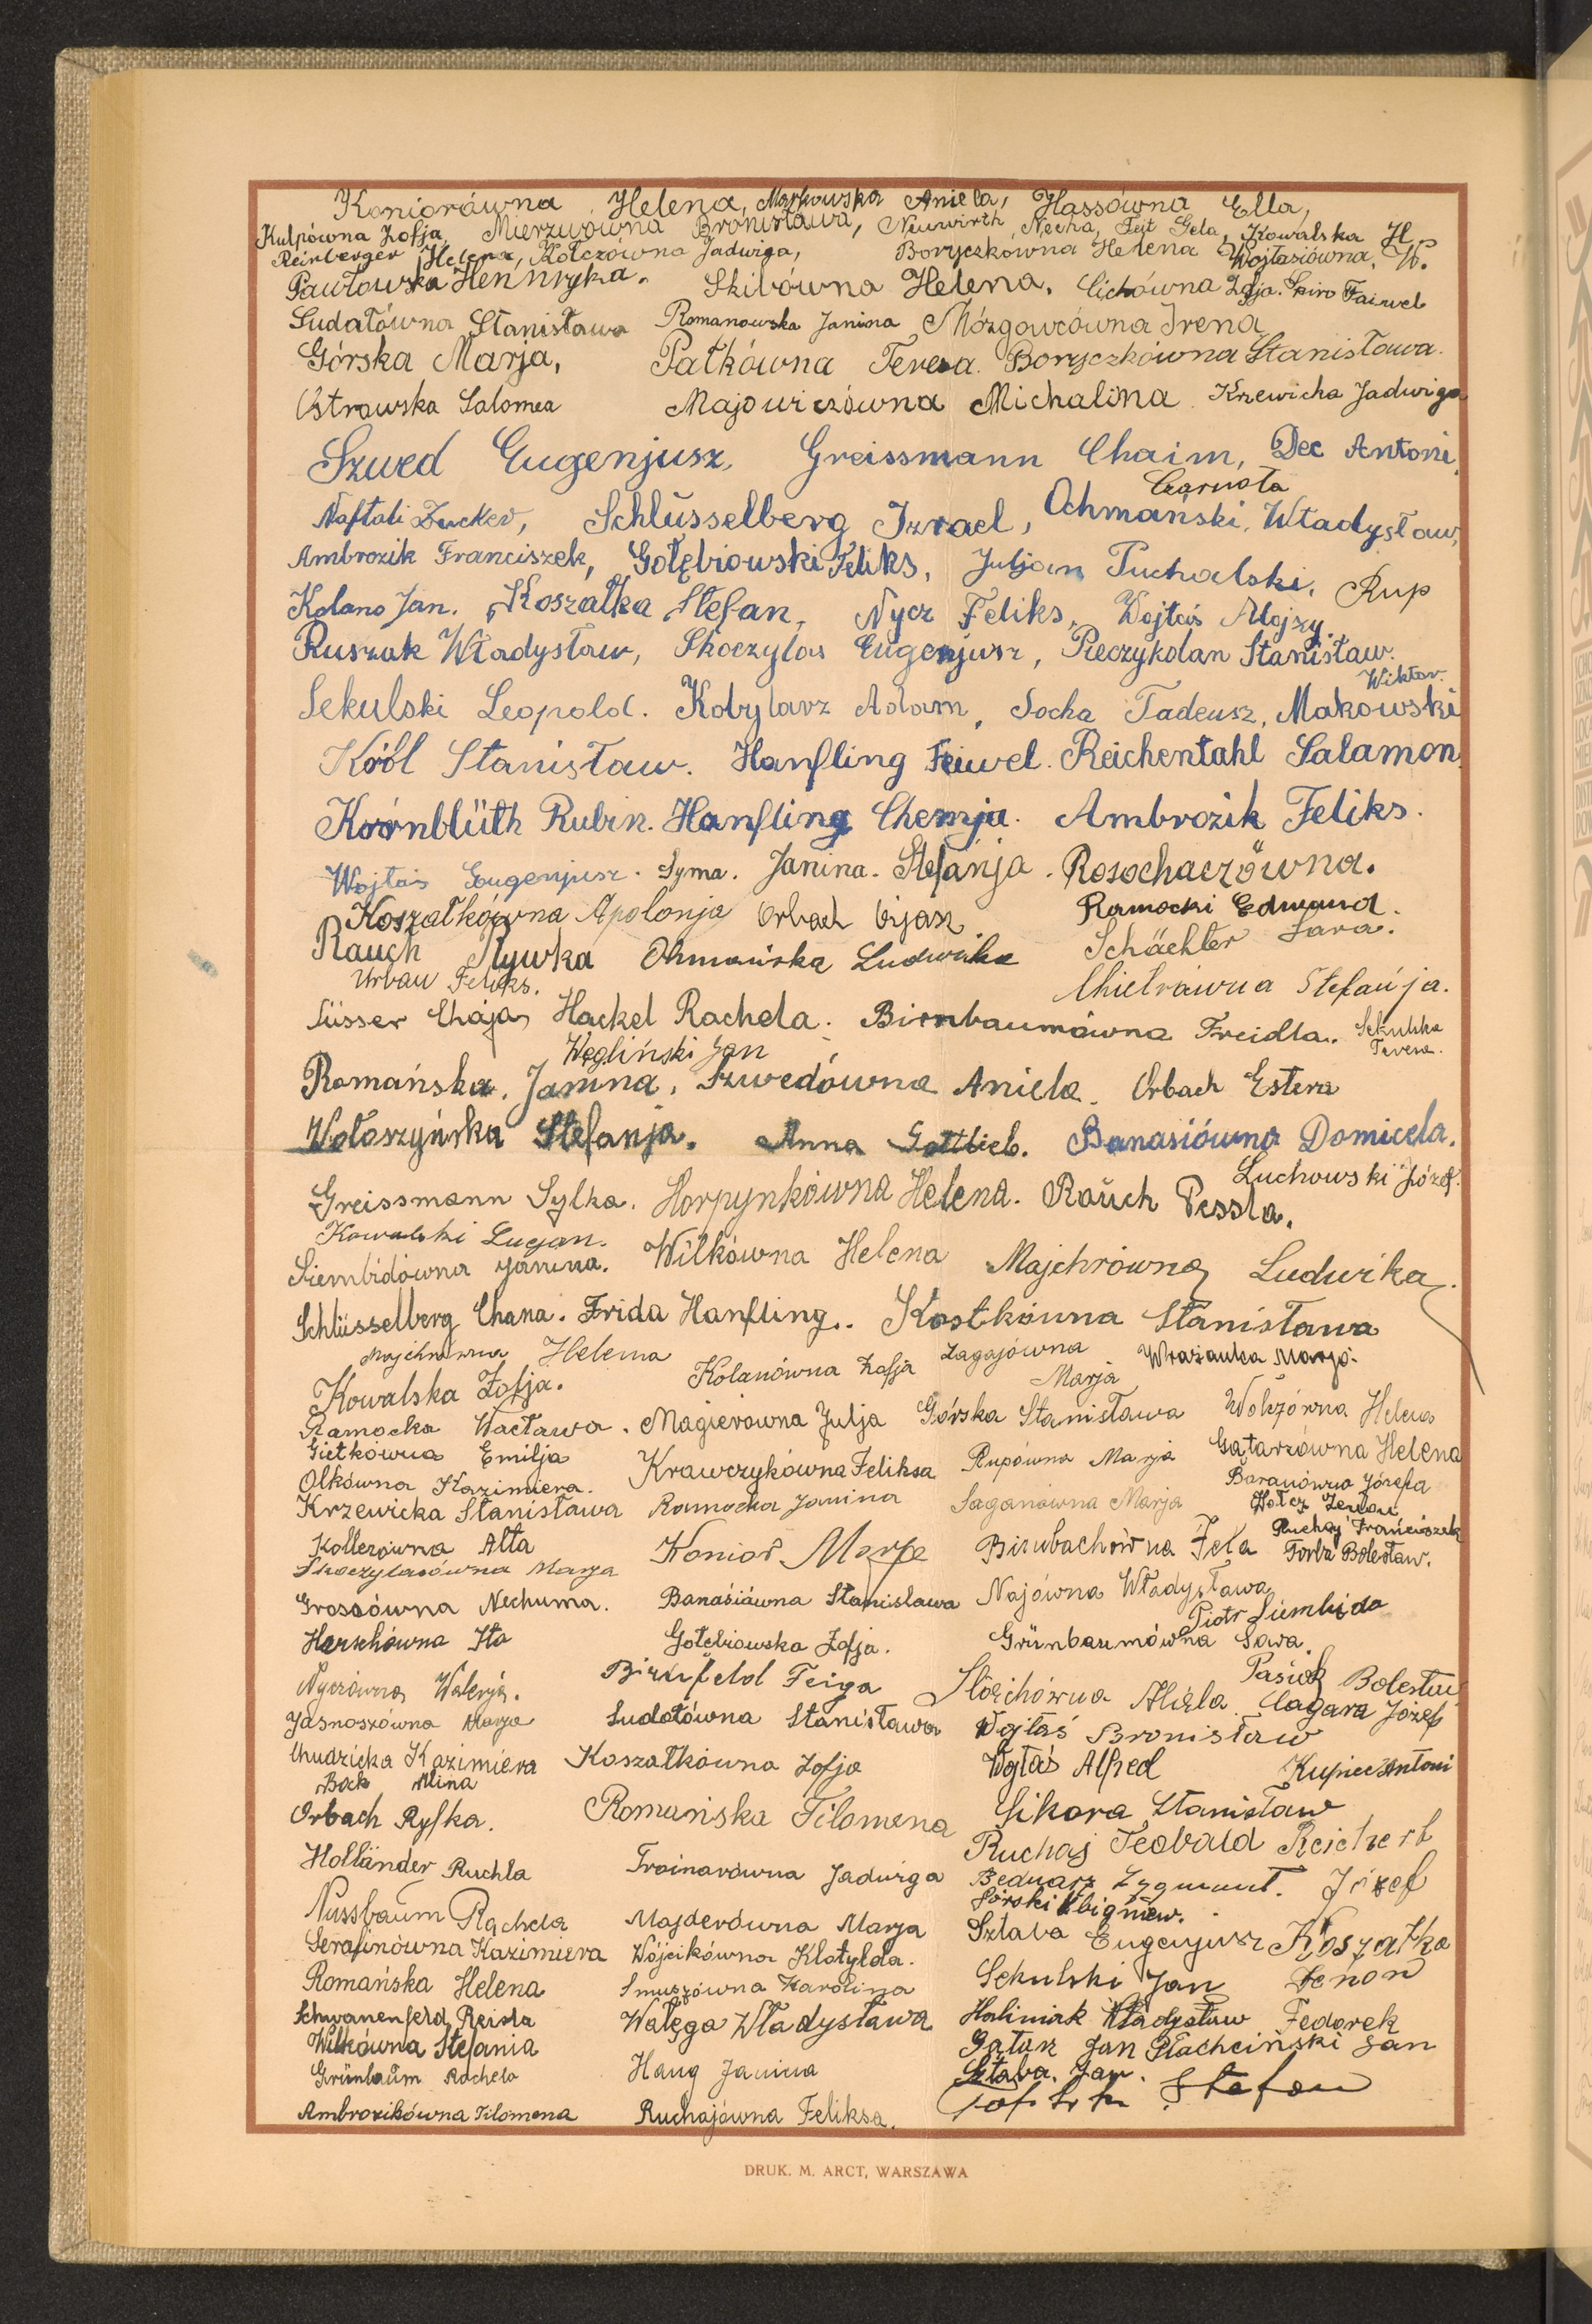 Koniorówna Helena, Markowska Aniela, Hassówna Ella,
Kulpówna Zofja, Mierzwówna Bronisława, Neuwirth Necha, Feit Gela, Kowalska H.
Reinberger Helena, Kołczówna Jadwiga, Boryczkówna Helena Wojtasiówna, W.
Pawłowska Hennryka. Skibówna Helena. Cichówna Zofja. Spiro Faiwel
Sudałówna Stanisława Romanowska Janina Mózgowcówna Irena
Górska Marja, Pałkówna Teresa. Boryczkówna Stanisława.
Ostrowska Salomea Majowiczówna Michalina. Krzewicka Jadwiga
Szwed Eugenjusz, Greissmann Chaim, Dec Antoni,
Czarnota
Naftali Zucker, Schlüsselberg Izrael, Ochmański, Władysław,
Ambrozik Franciszek, Gołębiowski Feliks, Juljan Puchalski, Rup
Kolano Jan, Koszałka Stefan, Nycz Feliks, Wojtaś Alojzy.
Ruszak Władysław, Skoczylas Eugenjusz, Pieczykolan Stanisław.
Wiktor.
Sekulski Leopold. Kobylarz Adam, Socha Tadeusz, Makowski
Król Stanisław. Hanfling Feiwel. Reichentahl Salamon.
Kornblüth Rubin. Hanfling Chemja. Ambrozik Feliks.
Wojtaś Eugenjusz. Syma. Janina. Stefanja. Rosochaczówna.
Koszałkówna Apolonja Orbach Erjasz Ramocki Edmund.
Rauch Rywka Ohmańska Ludwika Schächter Sara.
Urban Feliks. Chielrawna Stefanja.
Süsser Chaja, Hackel Rachela. Birnbaumówna Freidla. Sekulska Teresa.
Węgliński Jan
Romańska, Janina, Szwedówna Aniela. Orbach Estera
Wołoszyńska Stefanja. Anna Gottlieb. Banasiówna Domicela.
Luchowski Józef.
Greissmann Sylka. Horpynkówna Helena. Rauch Pessla.
Kowalski Lucjan.
Siembidówna Janina. Wilkówna Helena Majchrówna Ludwika.
Schlüsselberg Chana. Frida Hanfling. Kostkówna Stanisława
Majchrówna Helena Kolanówna Zofja Zagajówna Marja
Kowalska Zofja.
Ramocka Wacława. Magierówna Julja Górska Stanisława Wołczówna Helena
Giełkówna Emilja Krawczykówna Feliksa Rupówna Marja Gątarzówna Helena
Olkówna Kazimiera. Baranówna Józefa
Krzewicka Stanisława Ramocka Janina Saganówna Marja Wołcz Zenon
Ruchaj Franciszek
Kollerówna Alta Konior Marja Birnbachówna Fela Torba Bolesław.
Skoczylasówna Marja
Grossówna Nechuma. Banasiówna Stanisława Najówna Władysława
Piotr Siembida
Herschówna Ita Gołebiowska Zofja. Grünbaumówna Sara.
Nyczówna Walerja. Birnfeld Feiga Pasiek Bolesław
Jasnoszówna Marja Sudołówna Stanisława Cagara Józef
Wojtaś Bronisław
Chudzicka Kazimiera Koszałkówna Zofja Wojtaś Alfred Kupiec Antoni
Bąk Alina
Orbach Ryfka. Romańska Filomena Sikora Stanisław
Holländer Ruchla Troinarówna Jadwiga Ruchaj Teobald Reichert Józef
Bednarz Zygmunt.
Górski Zbigniew.
Nussbaum Rachela Majderówna Marja Sztaba Eugenjusz Koszałka Zenon
Serafinówna Kazimiera Wójcikówna Klotylda.
Romańska Helena Smuszówna Karolina Sekulski Jan
Schwanenfeld Reisla Wałęga Władysława Haliniak Władysław Fedorek Jan
Wilkówna Stefania Gątarz Jan Płachciński
Grünbaum Rachela Haug Janina Sztaba. Jan.
Stefan
Ambrozikówna Filomena Ruchajówna Feliksa.
DRUK. M. ARCT, WARSZAWA